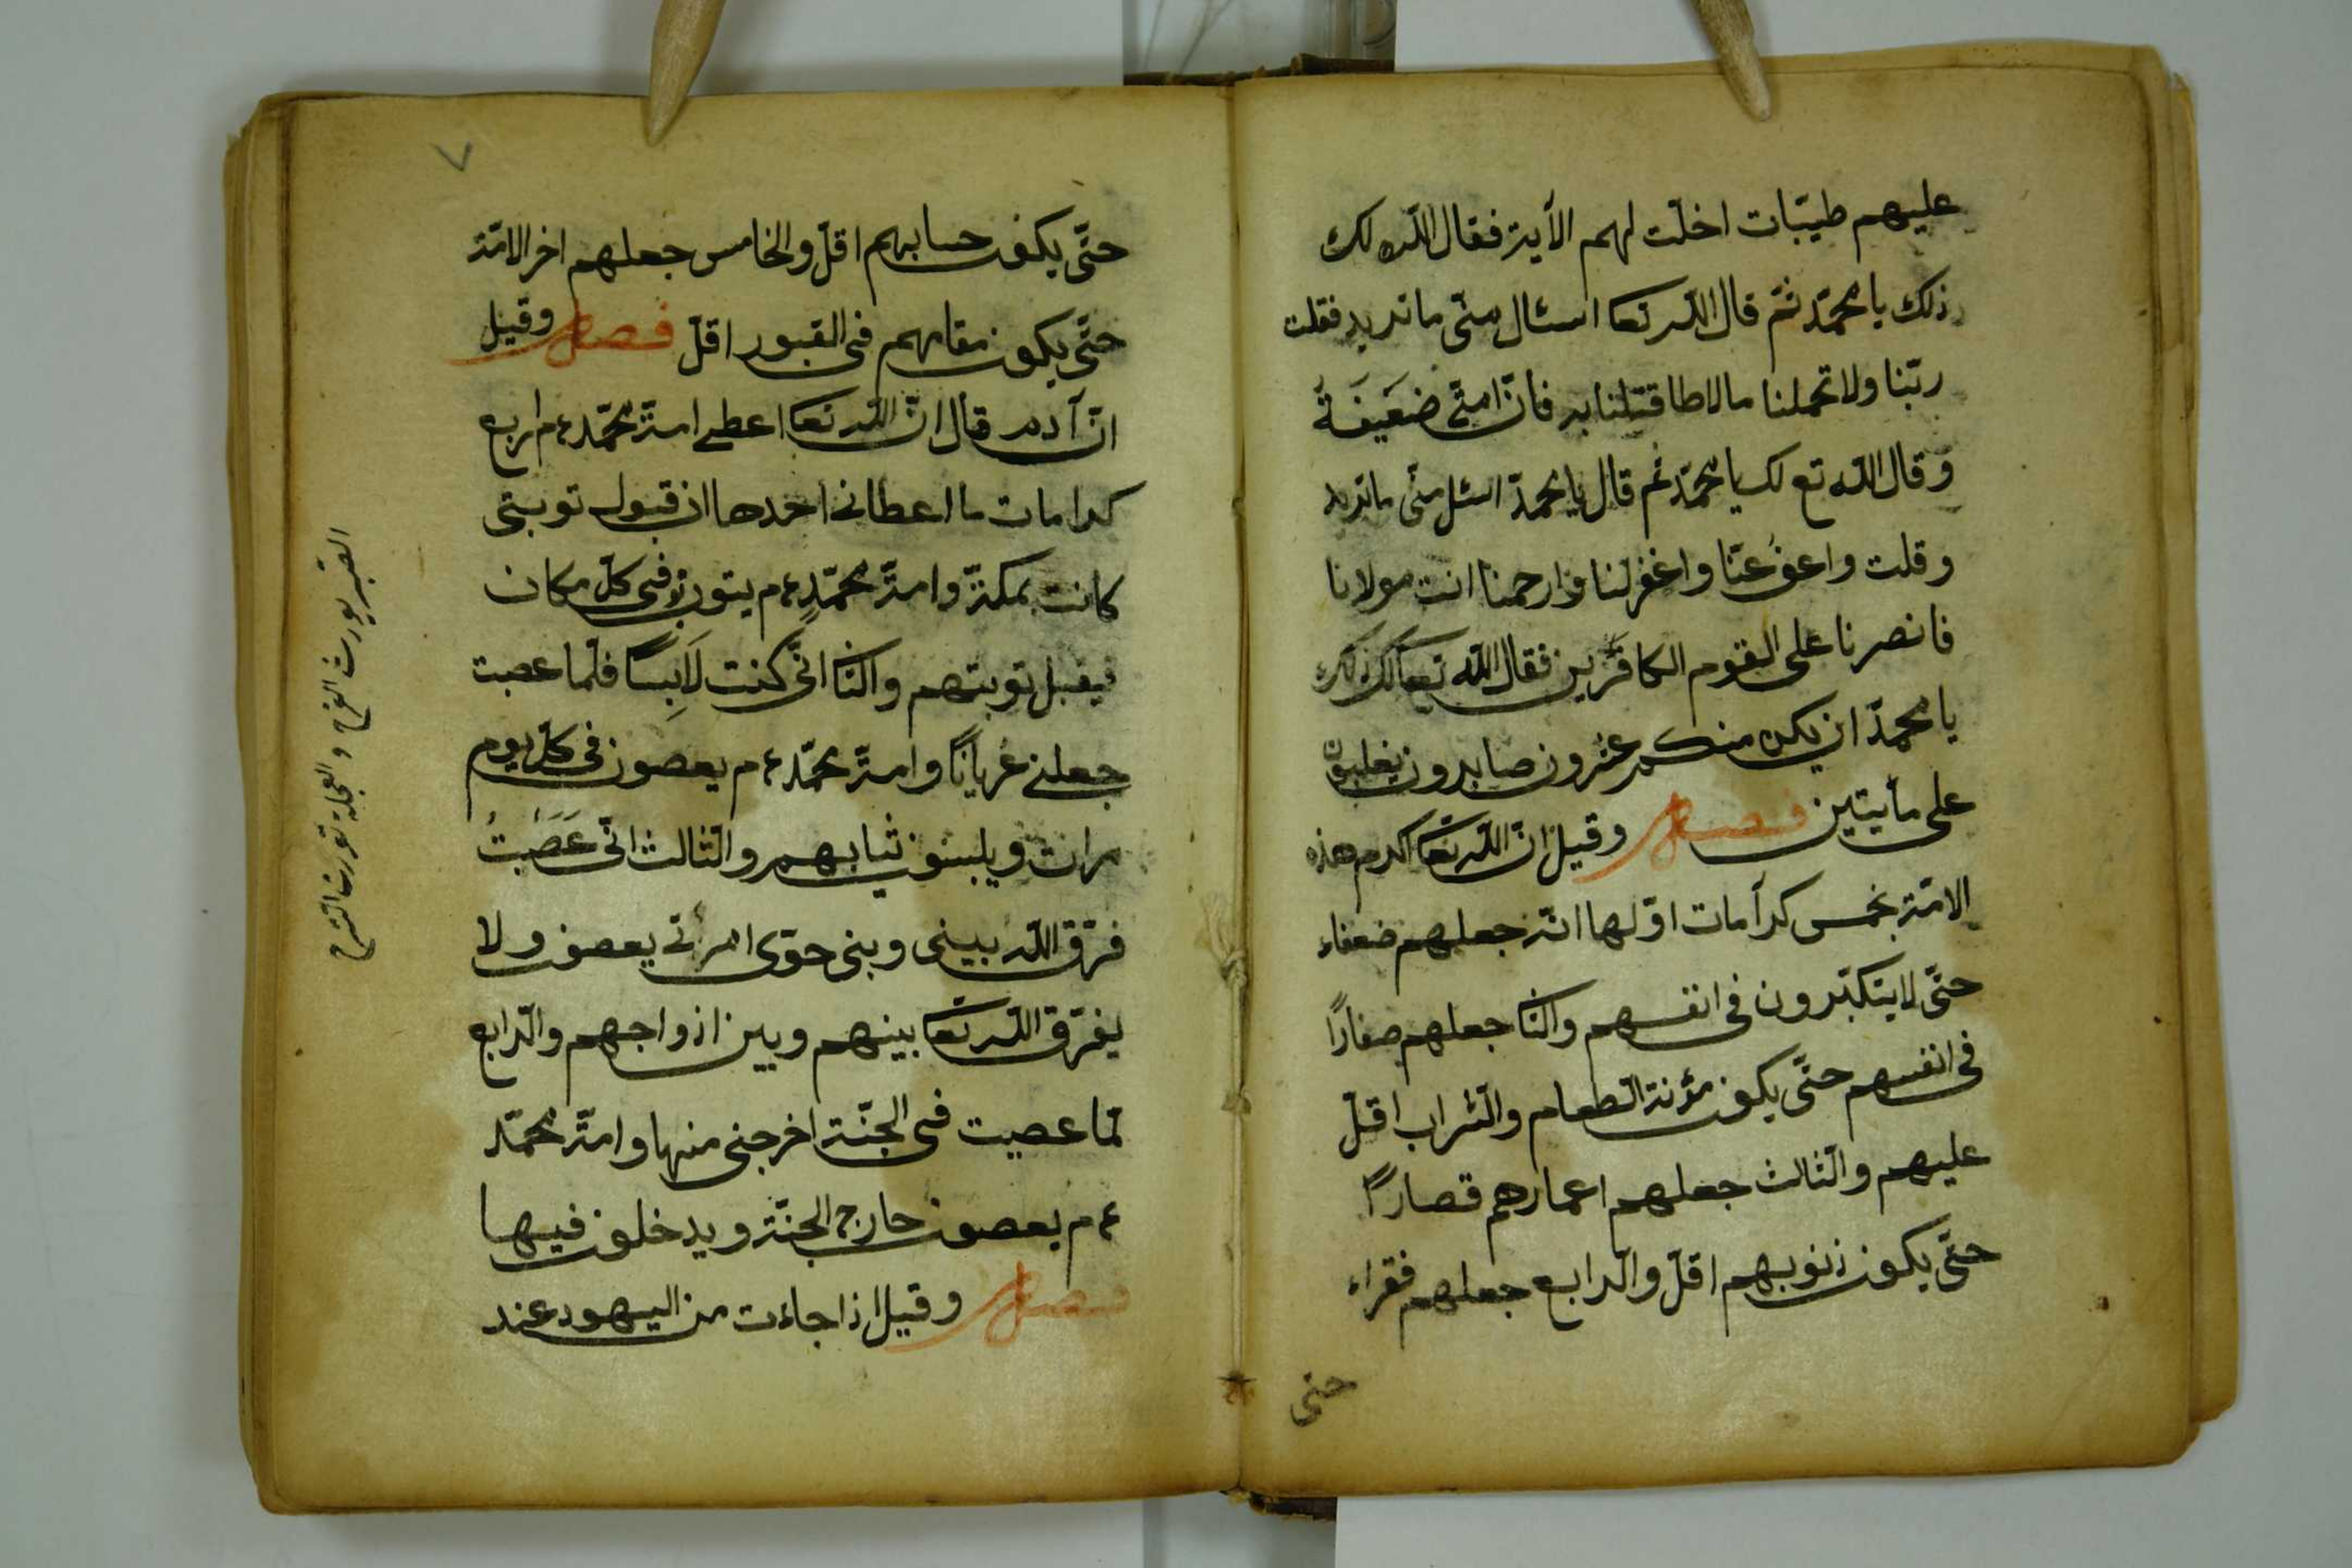 عليهم طيبّات اخلّت لهم الآية فقال اللّه لك
ذلك يا محمّد ثمّ قال اللّه تعا اسئال منّى ما تريد فقلت
ربّنا ولا تحملنا مالا طاقتلنا به فانّ امتّى ضَعَيفَةُ
وقال اللّه تع لك يا محمّد ثم قال يا محمدّ اسئل منّى ماتريد
وقلت واعفُ عنّا واغفرلنا وارحمنا انت مولانا
فانصرنا على القوم الكافرين فقال اللّه تعا لك ذلك
يا محمدّ ان يكن منكم عشرون صابرون يغلبون
على مأيتين فصل وقيل انّ اللّه تعَا اكرم هذه
الامّة بخمس كرآمات اوّلها انّه جعلهم ضعفاء
حتّى لا يتكبّرون فى انفسهم والثّا جعلهم صغارًا
فى انفسهم حتّى يكون مؤنة الطعام والشّراب اقلّ
عليهم والثّالث جعلهم اعمارهم قصارًا
حتّى يكون ذنوبهم اقلّ والرّابع جعلهم فقراء
حتى
٧
حتّى يكون حسابهم اقلّ والخامس جعلهم اخر الامّة
حتّى يكون مقامهم فى القبور اقلّ فصل وقيل
انّ آدم قال انّ اللّه تعا اعطى امّة محمّد ءم اربع
كرامات ما اعطانى احدها ان قبول توبتى
كانت بمكةّ وامّة محمّدٍ ءم يتوبون فى كلّ مكان
فيقبل توبتهم والثّا انّى كنت لَابِسًا فلّما عصبت
جعلنى عُريانًا وامّة محمّد ءم يعصون فى كلّ يوم
مرات ويلبسون ثيابهم والثّالث انّى عَصَبتُ
فرّق اللّه بينى وبنى حوّى امرأتى يعصون ولا
يفرّق اللّه تعَا بينهم وبين ازواجهم والرّابع
لمّا عصيت فى الجنّة اخرجنى منها وامّة محمّد
ءم يعصون حارج الجنّة ويدخلون فيها
فصل وقيل اذا جاءت من اليهود عند
القبر يورث الفرح والعجلة تورث الشرح